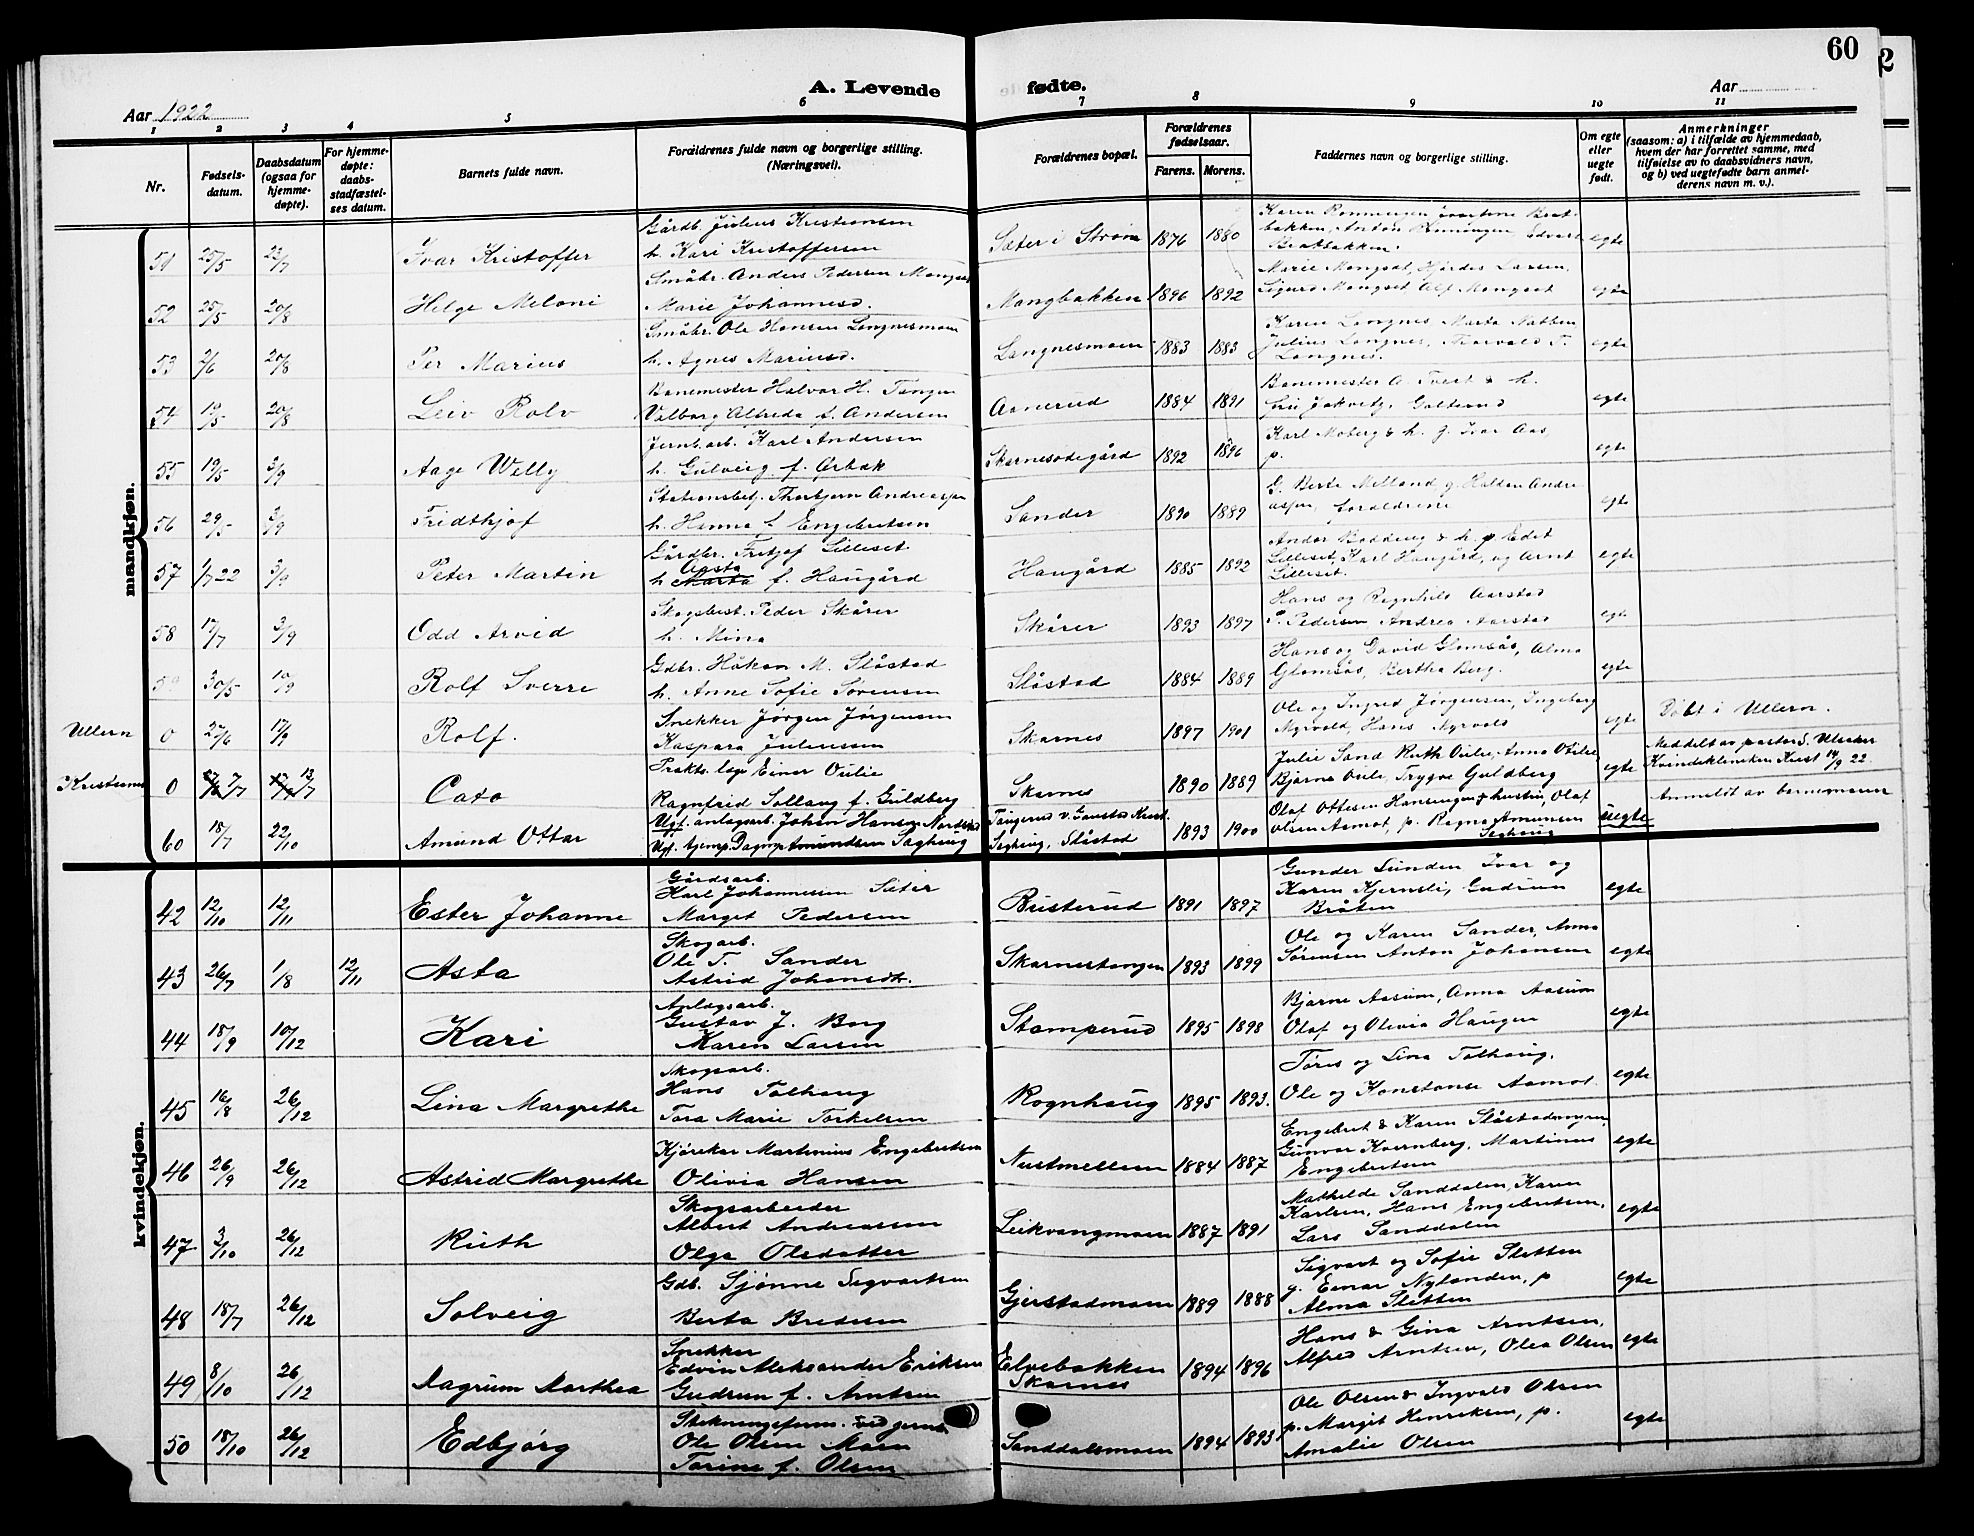 60
2
A. Levende fødte.
Aar 1922
Aar
1 2 3 4 5 6 7 8 9 10 11
Nr.
Fødsels-
datum.
Daabsdatum
(ogsaa for
hjemme-
døpte).
For hjemme-
døpte:
daabs-
stadfæstel-
ses datum.
Barnets fulde navn.
Forældrenes fulde navn og borgerlige stilling.
(Næringsvei).
Forældrenes bopæl.
Forældrenes
fødselsaar.
Farens. Morens.
Faddernes navn og borgerlige stilling.
Om egte
eller
uegte
født.
Anmerkninger
(saasom: a) i tilfælde av hjemmedaab,
hvem der har forrettet samme, med
tilføielse av to daabsvidners navn,
og b) ved uegtefødte barn anmel-
derens navn m. v.).
mandkjøn.
Gårdb. Julius Kristiansen
51 25/5 22/7 Ivar Kristoffer h. Kari Kristoffersen Sæter i Strøm 1876 1880 egte
Småbr. Anders Pedersen Mangset
52 25/5 20/8 Helge Meloni Marie Johannesd. Mangbakken 1896 1892 egte
Marie Mangset, Hjørdis Larsen,
Sigurd Mangset Alf Mangset
Småbr. Ole Hansen Langnesmoen
53 2/6 20/8 Per Marius h. Agnes Mariusd. Langnesmoen 1883 1883 egte
Karen Langnes Marta Nabben
Julius Langnes, Torvald T.
Langnes.
Banemester Halvor H. Tangen
54 19/5 20/8 Leiv Rolv Valborg Alfreda f. Andersen Aanerud 1884 1891 egte
Banemester A. Tvest & h.
Galterud
Jernb.arb. Karl Andersen
55 19/5 3/9 Aage Welly h. Gulveig f. Ørbæk Skarnesødegård 1892 1896 egte
Karl Moberg & h. g. Ivar Aas,
p.
Stationsbetj. Thorbjørn Andreassen
56 29/5 3/9 Fridthjof h. Hanna f. Engebretsen Sander 1890 1889 egte
G. Berte Melland g. Haldan Andre
assen, forældrene
Gårdbr. Fritjof Lilleset
Aasta
57 1/7 22 3/9 Peter Martin h. Marta f. Haugård Haugård 1885 1892 egte
Lilleset, Karl Haugård, og Arnt
Lilleset.
Skogsbest. Peder Skårer
58 17/7 3/9 Odd Arvid h. Mina Skårer 1893 1897 egte
Hans og Ragnhild Aarstad
P. Pedersen Andrea Aarstad
Gdbr. Håkon M. Slåstad
59 30/5 10/9 Rolf Sverre h. Anne Sofie Sørensen Slåstad 1884 1889 egte
Hans og David Glomsås, Alma
Glomsås, Bertha Berg.
Snekker Jørgen Jørgensen
Ullern 0 25/6 17/9 Rolf. Kaspara Juliussen Skarnes 1897 1901 egte Døbt i Ullern.
Ole og Ingrid Jørgensen, Ingeborg
Myrvold, Hans Myrvold
Prakts. læge Einar Oulie
0 7/7 13/7 Cato Ragnfrid Sollaug f. Guldberg Skarnes 1890 1889 egte
Julie Sand Ruth Oulie, Anna Otilie
Bjarne Oulie, Trygve Guldberg
Meddelt av pastor S. Ulsaker
Kvindeklinikken Krist 14/9 22.
Anmeldt av barnemoren
Ugt. anlægsarb. Johan Hansen Nordstad
60 18/7 22/10 Amund Ottar Ugt. tjenp. Dagny Amundsen Saghaug
Saghaug, Slåstad 1893 1900 uegte
Olaf Ottesen Hansengen & hustru, Olaf
Olsen Aamot, p. Ragna Amundsen
Saghaug
kvindekjøn.
Gårdsarb.
Karl Johannessen Sæter
42 12/10 12/11 Ester Johanne Marget Pedersen Busterud 1891 1897 egte
Gunder Lunden Ivar og
Karen Kjernsli, Gudrun
Bråten
Skogarb.
Ole T. Sander
43 26/7 1/8 12/11 Asta Astrid Johansdtr. Skarnestangen 1893 1899 egte
Ole og Karen Sander, Anna
Sørensen Anton Johansen
Anlægsarb.
Gustav J. Berg
44 18/9 10/12 Kari Karen Larsen Stomperud 1895 1898 egte
Bjarne Aasum, Anna Aasum
Olaf og Olivia Haugen
Skogsarb.
Hans Tolhaug
45 16/8 26/12 Lina Margrethe Tora Marie Torkelsen Rognhaug 1895 1893. egte
Tøres og Lina Tolhaug,
Ole og Konstanse Aamot.
Kjørekar Martinius Engebretsen
46 26/9 26/12 Astrid Margrethe Olivia Hansen Nustmellem 1884 1887 egte
Engebret & Karen Slåstadmoen,
Gunvor Kvernberg, Martinus
Engebretsen
Skogsarbeider
Albert Andreassen
47 3/10 26/12 Ruth Olga Olsdatter Leikvangmoen 1887 1891 egte
Mathilde Sanddalen, Karen
Karlsen, Hans Engebretsen,
Lars Sanddalen
Gdb. Sjønne Sigvartsen
48 18/7 26/12 Solveig Berta Bredesen Gjerstadmoen 1889 1888 egte
Sigvart og Sofie Sletten
g. Einar Nylanden, p
Alma Sletten
Snekker
Edvin Aleksander Eriksen
49 8/10 26/12 Dagrun Marthea Gudrun f. Arntsen Elvebakken Skarnes 1894 1896 egte
Hans & Gina Arntsen,
Alfred Arntsen, Olea Olsen
Ole Olsen Moen
50 18/10 26/12 Edbjørg Torine f. Olsen Sanddalsmoen 1894 1893 egte
Ole Olsen & Ingvald Olsen
p. Margit Henriksen, p.
Amalie Olsen